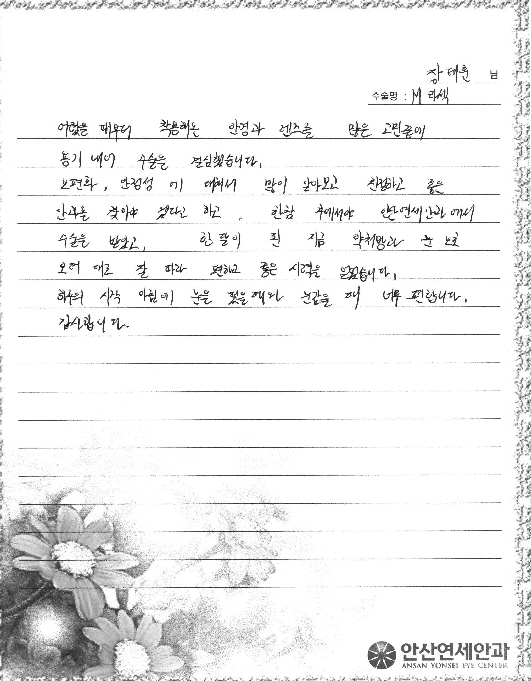 장태훈 님
수술명 : M라섹
어렸을 때부터 착용해온 안경과 렌즈를 많은 고민끝에
용기 내어 수술을 결심했습니다.
안전성 에 대해서 많이 알아보고 친절하고 좋은
안과를 찾아야 겠다고 하고, 안산연세안과에서
수술을 받았고, 한 달이 된 지금 눈
대로 잘 하라 편하고 좋은 시력을 얻었습니다.
하루의 시작 아침에 눈을 떴을때나 눈감을 때 너무 편합니다.
감사합니다.
안산연세안과
ANSAN YONSEI EYE CENTER